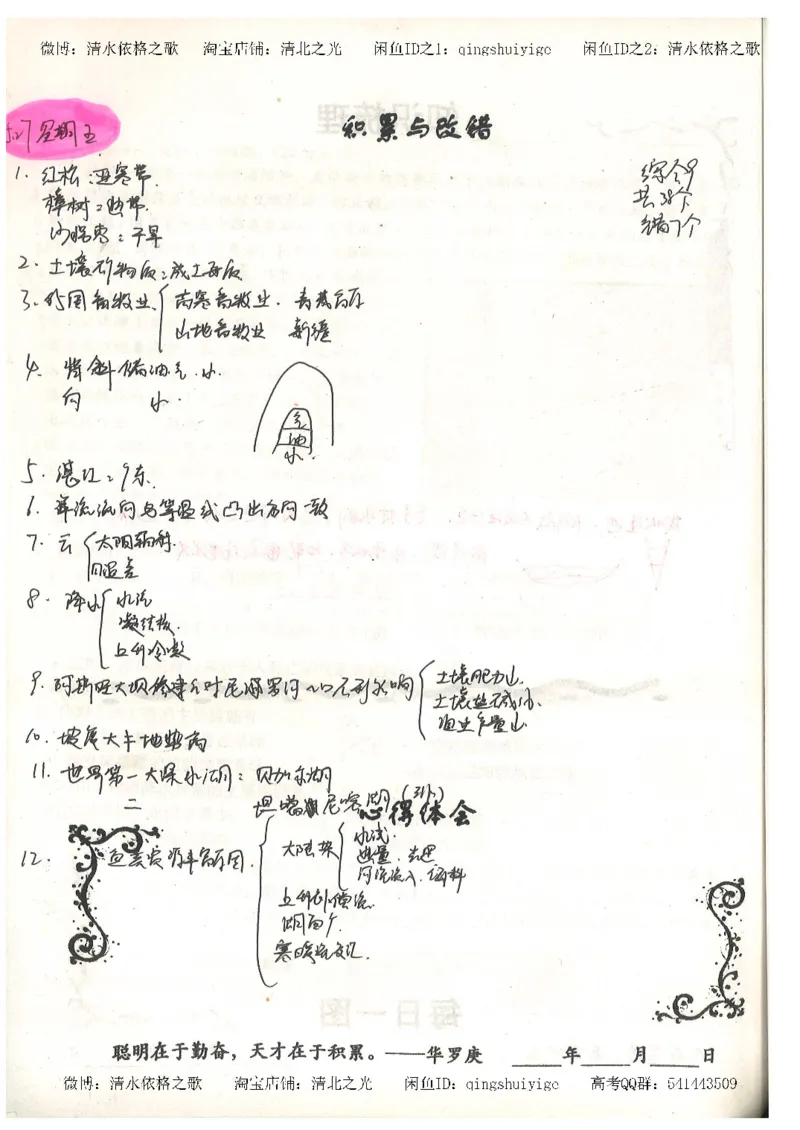 微博：清水依格之歌 淘宝店铺：清北之光 闲鱼ID之1：qingshuiyige 闲鱼ID之2：清水依格之歌
5.27 星期五
积累与改错
综合9
共38个
错7个
1. 红松：亚寒带
樟树：热带
沙棘枣：干旱
2. 土壤矿物质：成土母质
3. 我国畜牧业 高寒畜牧业 青藏高原
山地畜牧业 新疆
4. 背斜储油气、水
向 水
气
油
水
5. 湛江：广东
6. 洋流流向与等温线凸出方向一致
7. 云 太阳辐射
日温差
8. 降水 水汽
凝结核
上升冷凝
9. 阿斯旺大坝修建后对尼罗河入口不利影响 土壤肥力↓
土壤盐碱化
渔业产量↓
10. 坡度大于地势高
11. 世界第一大深水湖：贝加尔湖
二 坦噶尼喀湖(引)
心得体会
12. 渔业资源丰富原因 大陆架 水浅
热量、光照
河流流入、饵料
上升补偿流
湖面广
寒暖流交汇
聪明在于勤奋，天才在于积累。——华罗庚 ____年____月____日
微博：清水依格之歌 淘宝店铺：清北之光 闲鱼ID：qingshuiyige 高考QQ群：541443509